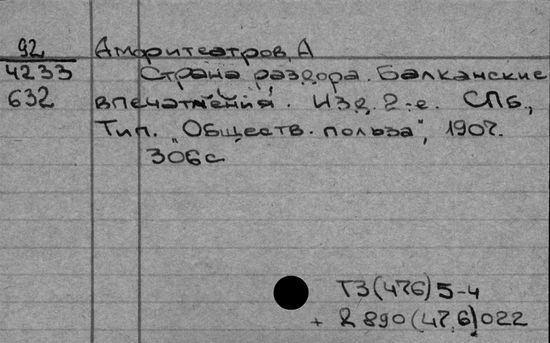 92 Амфитеатров, А
4233 Страна раздора. Балканские
632 впечатления. Изд. 2-е. СПб.,
Тип. "Обществ. польза", 1907.
306с
Т3(476)5-4
+ 2 890(47.6)022